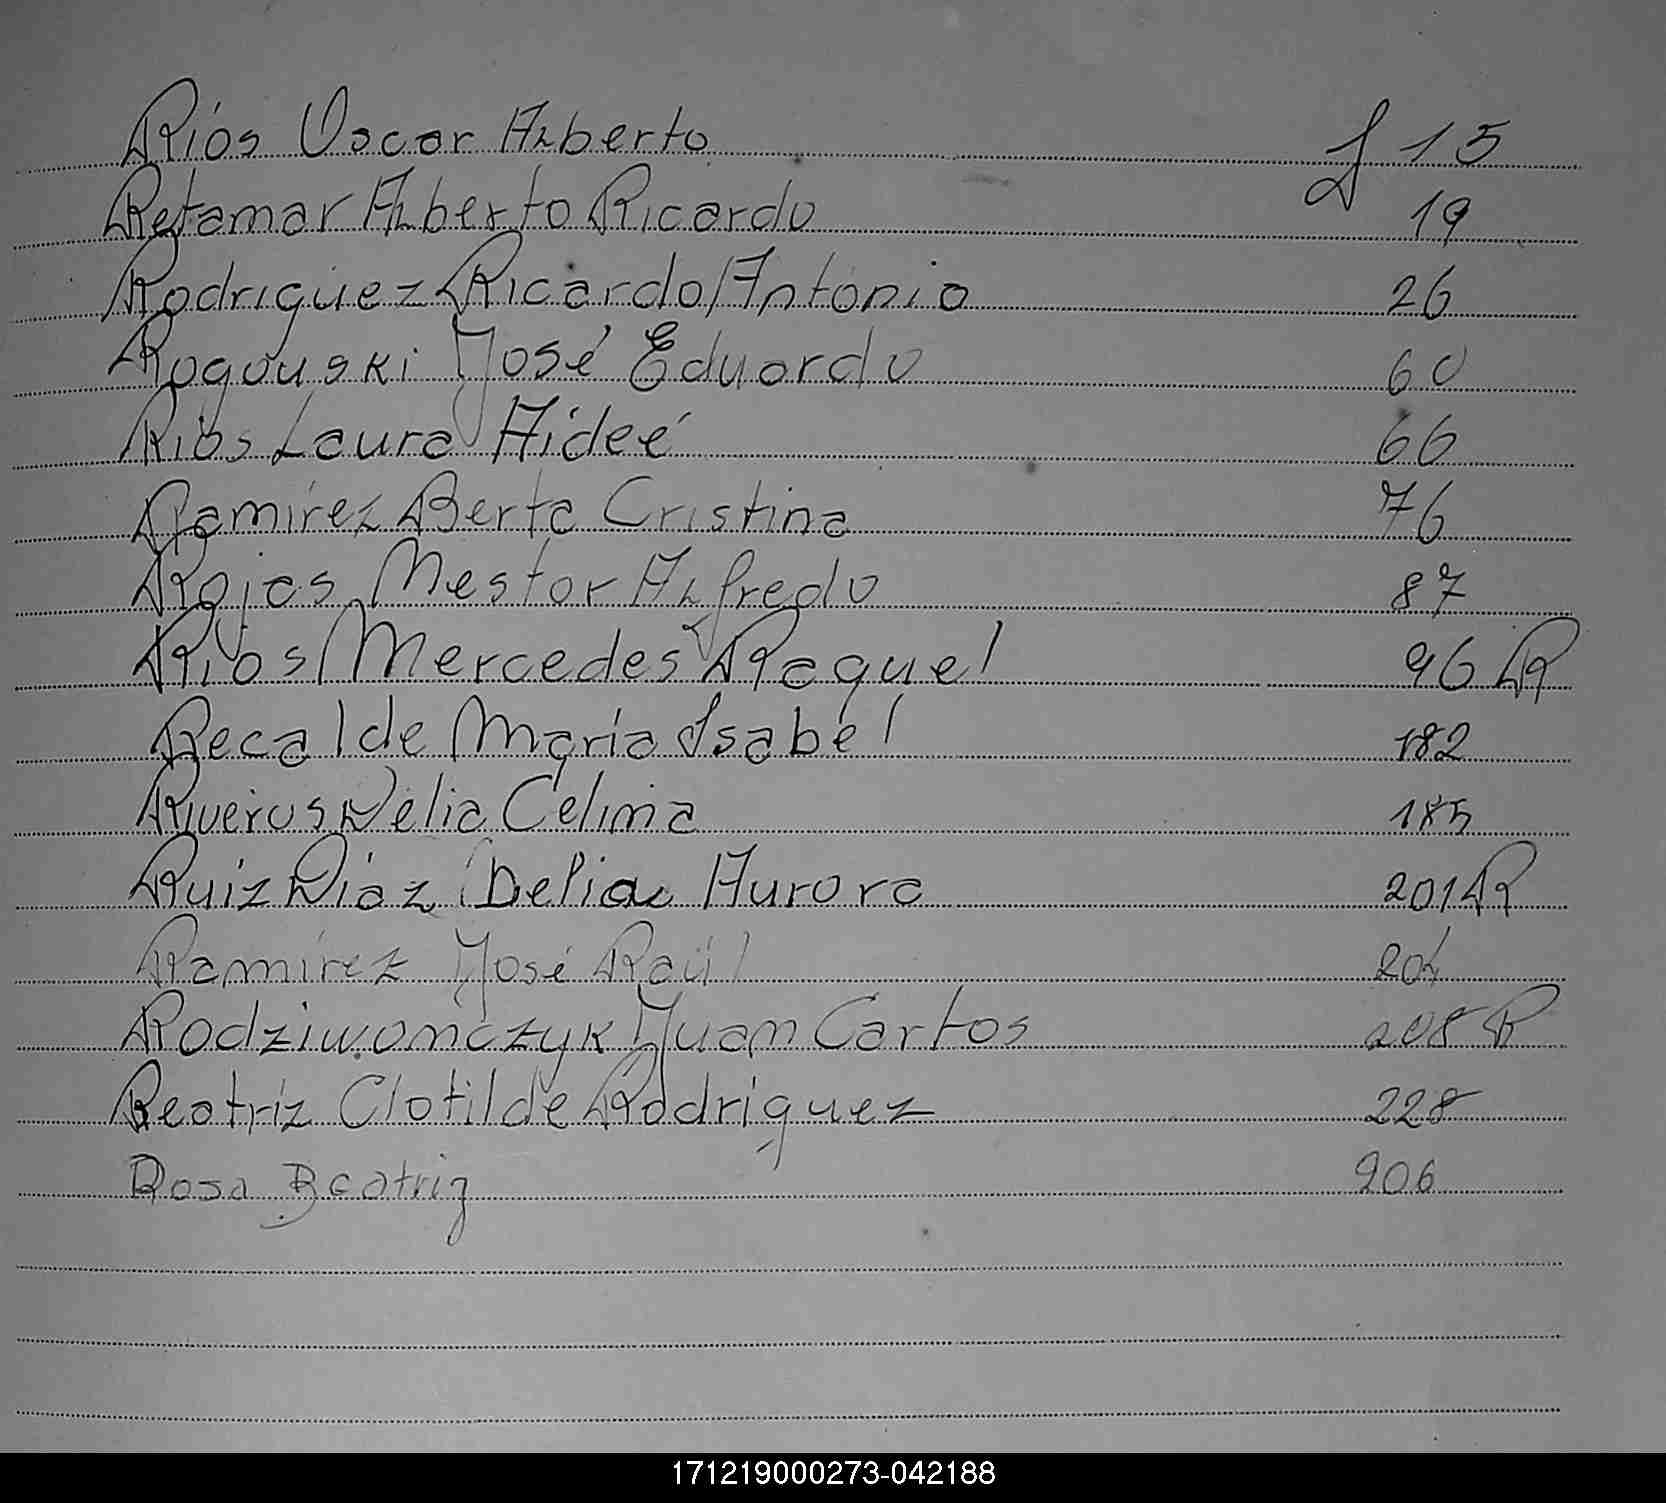 Ríos Oscar Alberto f 15
Retamar Alberto Ricardo 19
Rodriguez Ricardo Antonio 26
Rogouski José Eduardo 60
Ríos Laura Aideé 66
Ramírez Berta Cristina 76
Rojas Nestor Alfredo 87
Ríos Mercedes Raquel 96 R
Recalde María Isabel 182
Riveros Delia Celima 185
Ruiz Diaz Delia Aurora 201 R
Ramírez José Raúl 204
Rodziwonczyk Juan Carlos 208 R
Beatriz Clotilde Rodríguez 228
Rosa Beatriz 206
171219000273-042188